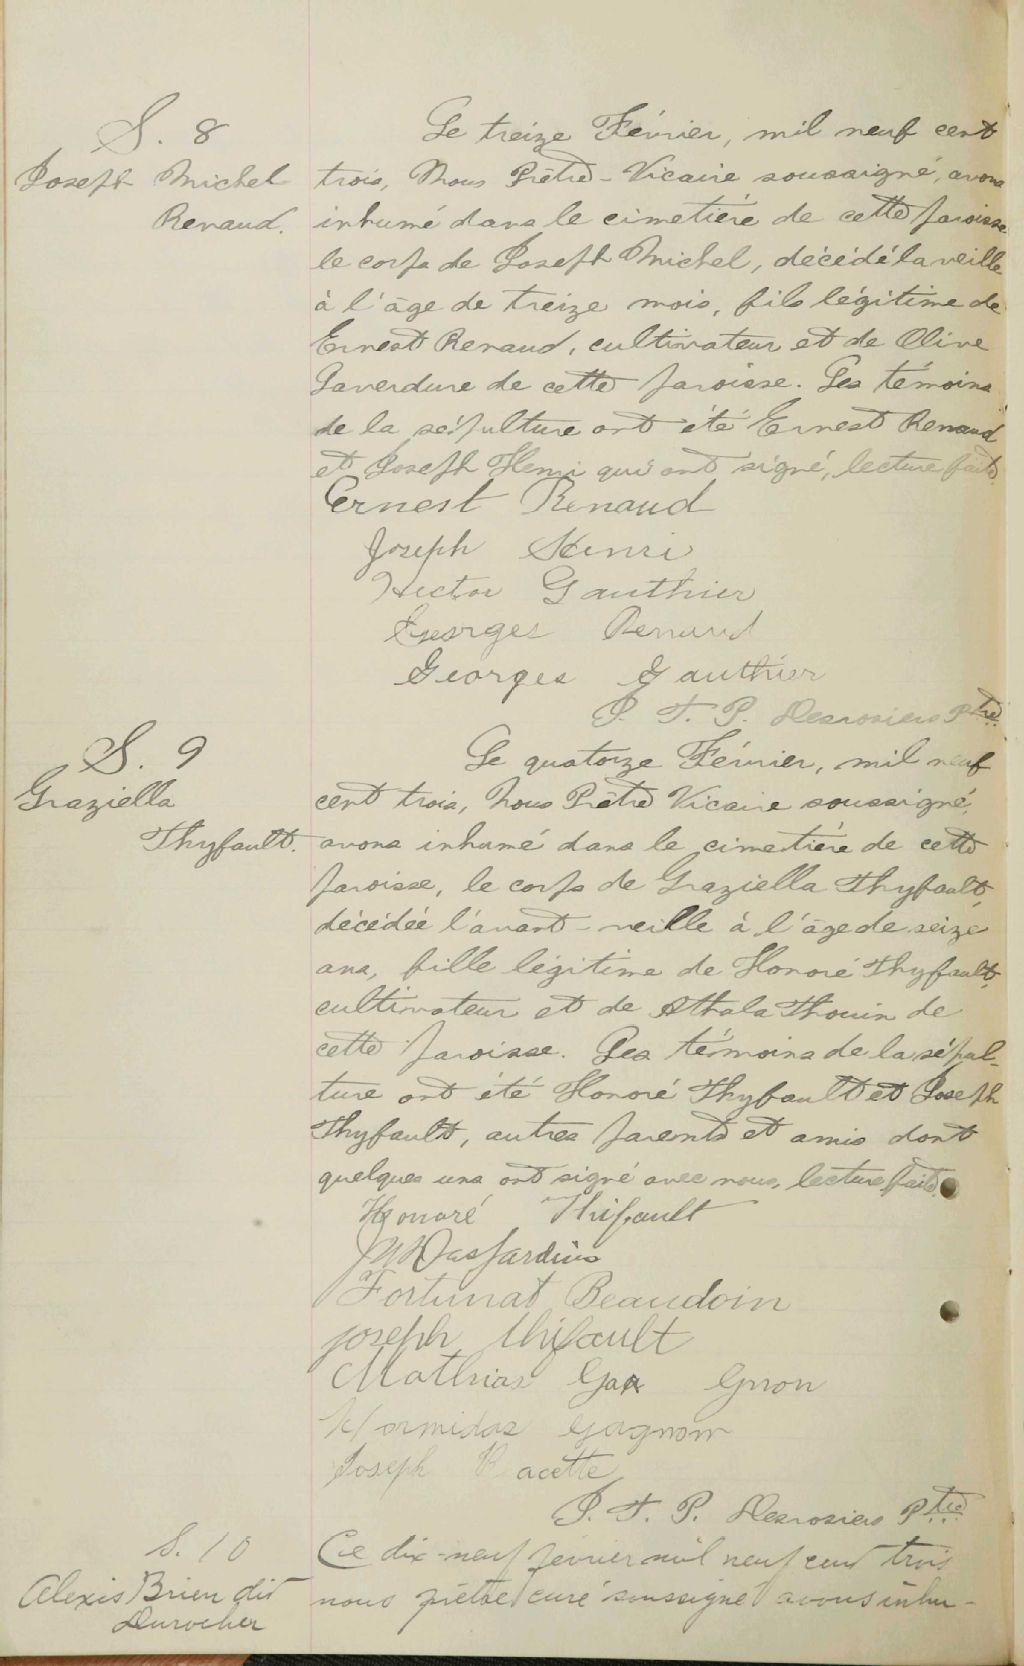 S. 8
Joseph Michel
Renaud.
Le treize Février, mil neuf cent
trois, Nous Prêtre-Vicaire soussigné, avons
inhumé dans le cimetière de cette paroisse
le corps de Joseph Michel, décédé la veille
à l'âge de treize mois, fils légitime de
Ernest Renaud, cultivateur et de Olive
Laverdure de cette paroisse. Les témoins
de la sépulture ont été Ernest Renaud
et Joseph Henri qui ont signé, lecture faite.
Ernest Renaud
Joseph Henri
Hector Gauthier
Georges Renaud
Georges Gauthier
J. T. P. Desrosiers Ptre
S. 9
Graziella
Thyfault.
Le quatorze Février, mil neuf
cent trois, Nous Prêtre Vicaire soussigné,
avons inhumé dans le cimetière de cette
paroisse, le corps de Graziella Thyfault,
décédée l'avant-veille à l'âge de seize
ans, fille légitime de Honoré Thyfault,
cultivateur et de Athala Thouin de
cette paroisse. Les témoins de la sépul-
ture ont été Honoré Thyfault et Joseph
Thyfault, autres parents et amis dont
quelques uns ont signé avec nous, lecture faite.
Honoré Thifault
Desjardins
Fortunat Beaudoin
joseph thifault
Mathias Gax Gnon
Hormidas gagnon
Joseph Racette
J. T. P. Desrosiers Ptre
S. 10
Alexis Brien dit
Durocher
Ce dix-neuf février mil neuf cent trois
nous prêtre curé soussigné avons inhu-